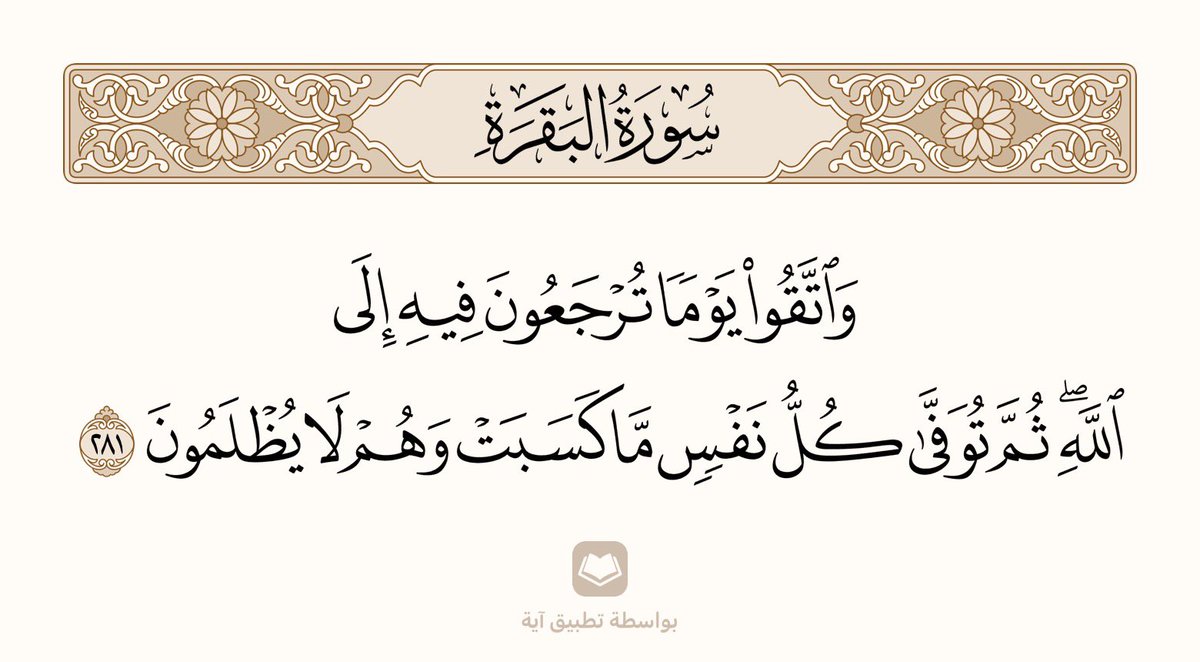 سُورَةُ البَقَرَةِ
وَٱتَّقُوا۟ يَوْمًا تُرْجَعُونَ فِيهِ إِلَى
ٱللَّهِ ۖ ثُمَّ تُوَفَّىٰ كُلُّ نَفْسٍ مَّا كَسَبَتْ وَهُمْ لَا يُظْلَمُونَ ٢٨١
بواسطة تطبيق آية